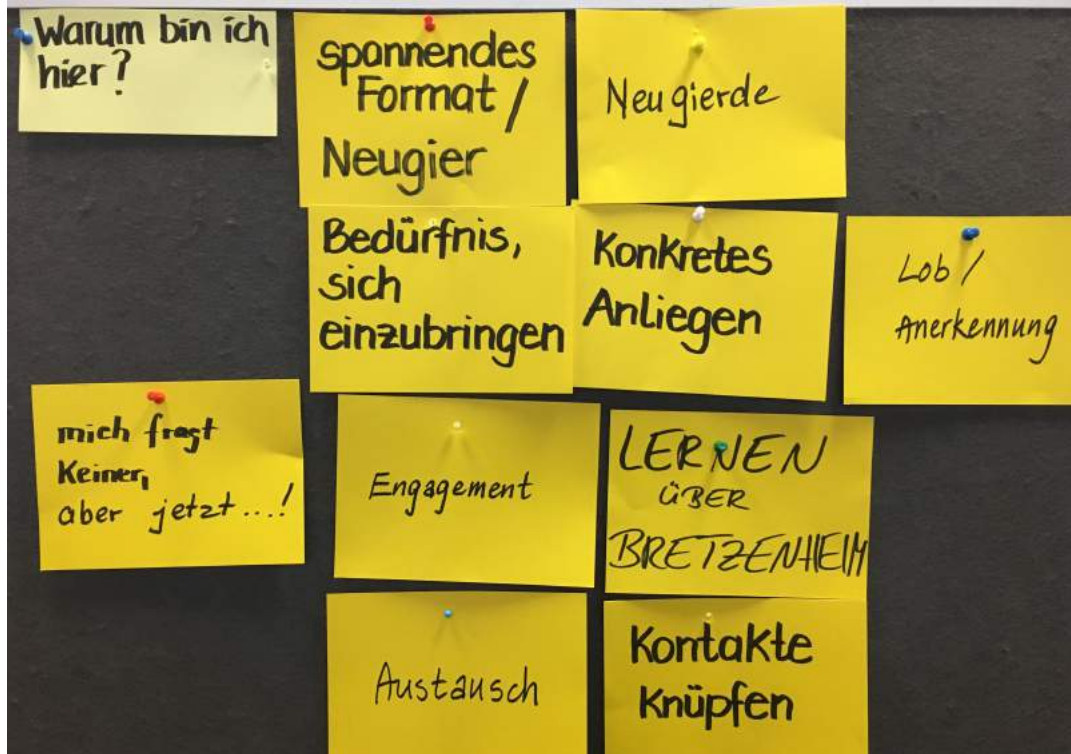 Warum bin ich
hier?
spannendes
Format /
Neugier
Neugierde
Bedürfnis,
sich
einzubringen
Konkretes
Anliegen
Lob /
Anerkennung
mich fragt
Keiner,
aber jetzt...!
Engagement
LERNEN
ÜBER
BRETZENHEIM
Austausch
Kontakte
Knüpfen